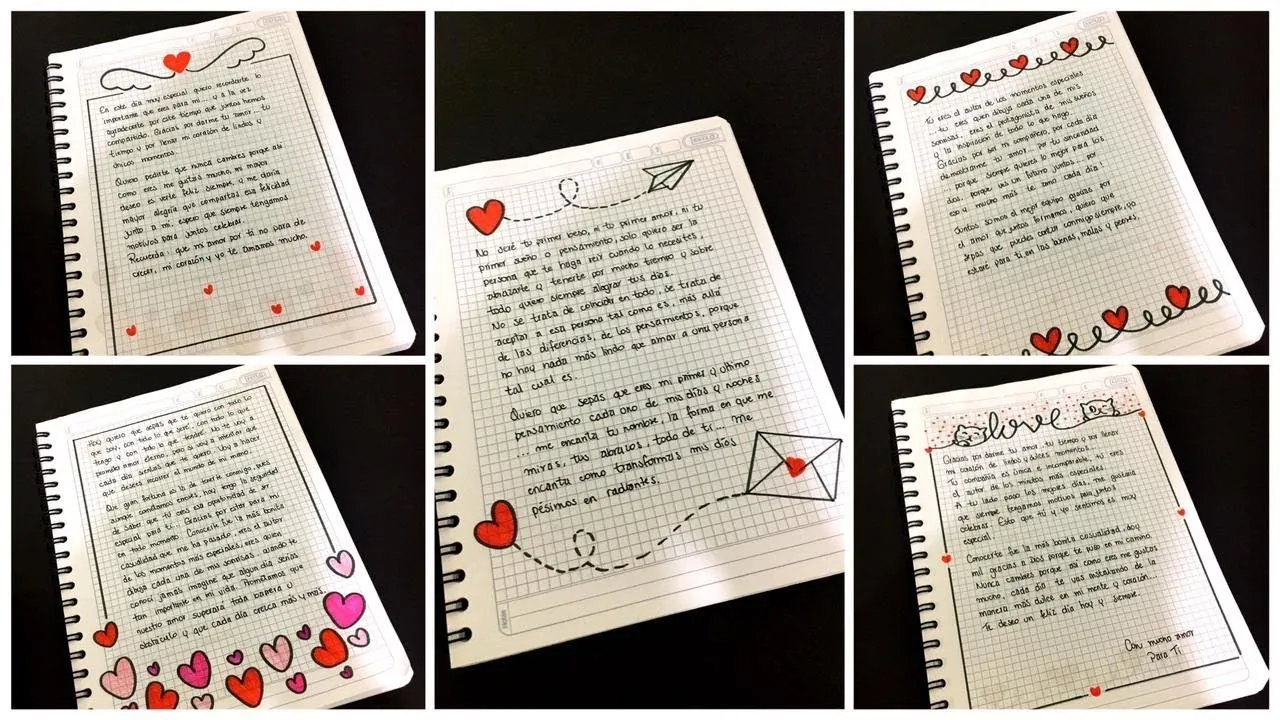 En este día muy especial quiero recordarte lo
importante que eres para mi... y a la vez
agradecerte por este tiempo que juntos hemos
compartido. Gracias por darme tu amor... tu
tiempo y por llenar mi corazón de lindos y
únicos momentos.
Quiero pedirte que nunca cambies porque así
como eres me gustas mucho, mi mayor
deseo es verte feliz siempre, y me daría
mayor alegría que compartas esa felicidad
junto a mi, espero que siempre tengamos
motivos para juntos celebrar.
Recuerda: que mi amor por ti no para de
crecer, mi corazón y yo te amamos mucho.
Hoy quiero que sepas que te quiero con todo lo
que soy, con todo lo que seré... con todo lo que
tengo y con todo lo que tendré. No te voy a
prometer amor eterno, pero si voy a intentar que
cada día sientas que te quiero. Voy a hacer
que desees recorrer el mundo de mi mano.
Que gran fortuna es la de tenerte conmigo, pues
aunque cometamos errores, hoy tengo la seguridad
de saber que tú eres esa oportunidad de ser
especial para ti... Gracias por estar para mi
en todo momento. Conocerte fue la más bonita
casualidad que me ha pasado, eres el autor
de los momentos más especiales, eres quien
dibuja cada una de mis sonrisas, cuando te
conocí jamás imagine que algun día serías
tan importante en mi vida. Prometamos que
nuestro amor superará toda barrera u
obstáculo y que cada día crezca más y más.
No seré tu primer beso, ni tu primer amor, ni tu
primer sueño o pensamiento, solo quiero ser la
persona que te haga reír cuando lo necesites,
abrazarte y tenerte por mucho tiempo y sobre
todo quiero siempre alegrar tus días.
No se trata de coincidir en todo, se trata de
aceptar a esa persona tal como es, más allá
de las diferencias, de los pensamientos, porque
no hay nada más lindo que amar a una persona
tal cual es.
Quiero que sepas que eres mi primer y último
pensamiento cada uno de mis días y noches
... me encanta tu nombre, la forma en que me
miras, tus abrazos, todo de ti... Me
encanta como transformas mis días
pésimos en radiantes.
Tu eres el autor de los momentos especiales
... tu eres quien dibuja cada una de mis
sonrisas, eres el protagonista de mis sueños
y la inspiración de todo lo que hago.
Gracias por ser mi compañero, por cada día
demostrarme tu amor... por tu sinceridad
... porque siempre quieres lo mejor para los
dos, porque ves un futuro juntos... por
eso y mucho más te amo cada día!
Juntos somos el mejor equipo gracias por
el amor que juntos formamos, quiero que
sepas que puedes contar conmigo siempre, yo
estaré para ti, en las buenas, malas y peores.
love
Gracias por darme tu amor, tu tiempo y por llenar
mi corazón de lindos y dulces momentos...
Tu compañía es única e incomparable, tú eres
el autor de los minutos más especiales.
A tu lado paso los mejores días, me gustaría
que siempre tengamos motivos para juntos
celebrar. Esto que tú y yo sentimos es muy
especial.
Conocerte fue la más bonita casualidad, doy
mil gracias a Dios porque te puso en mi camino.
Nunca cambies porque así como eres me gustas
mucho, cada día te vas instalando de la
manera más dulce en mi mente y corazón...
Te deseo un feliz día hoy y siempre.
Con mucho amor
Para Ti